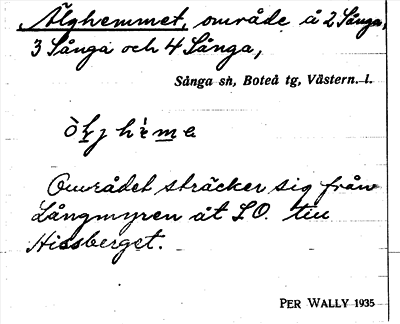 Älghemmet, område å 2 Sånga,
3 Sånga och 4 Sånga,
Sånga sn, Boteå tg, Västern. l.
Området sträcker sig från
Långmyren åt S.O. till
Hissberget.
PER WALLY 1935